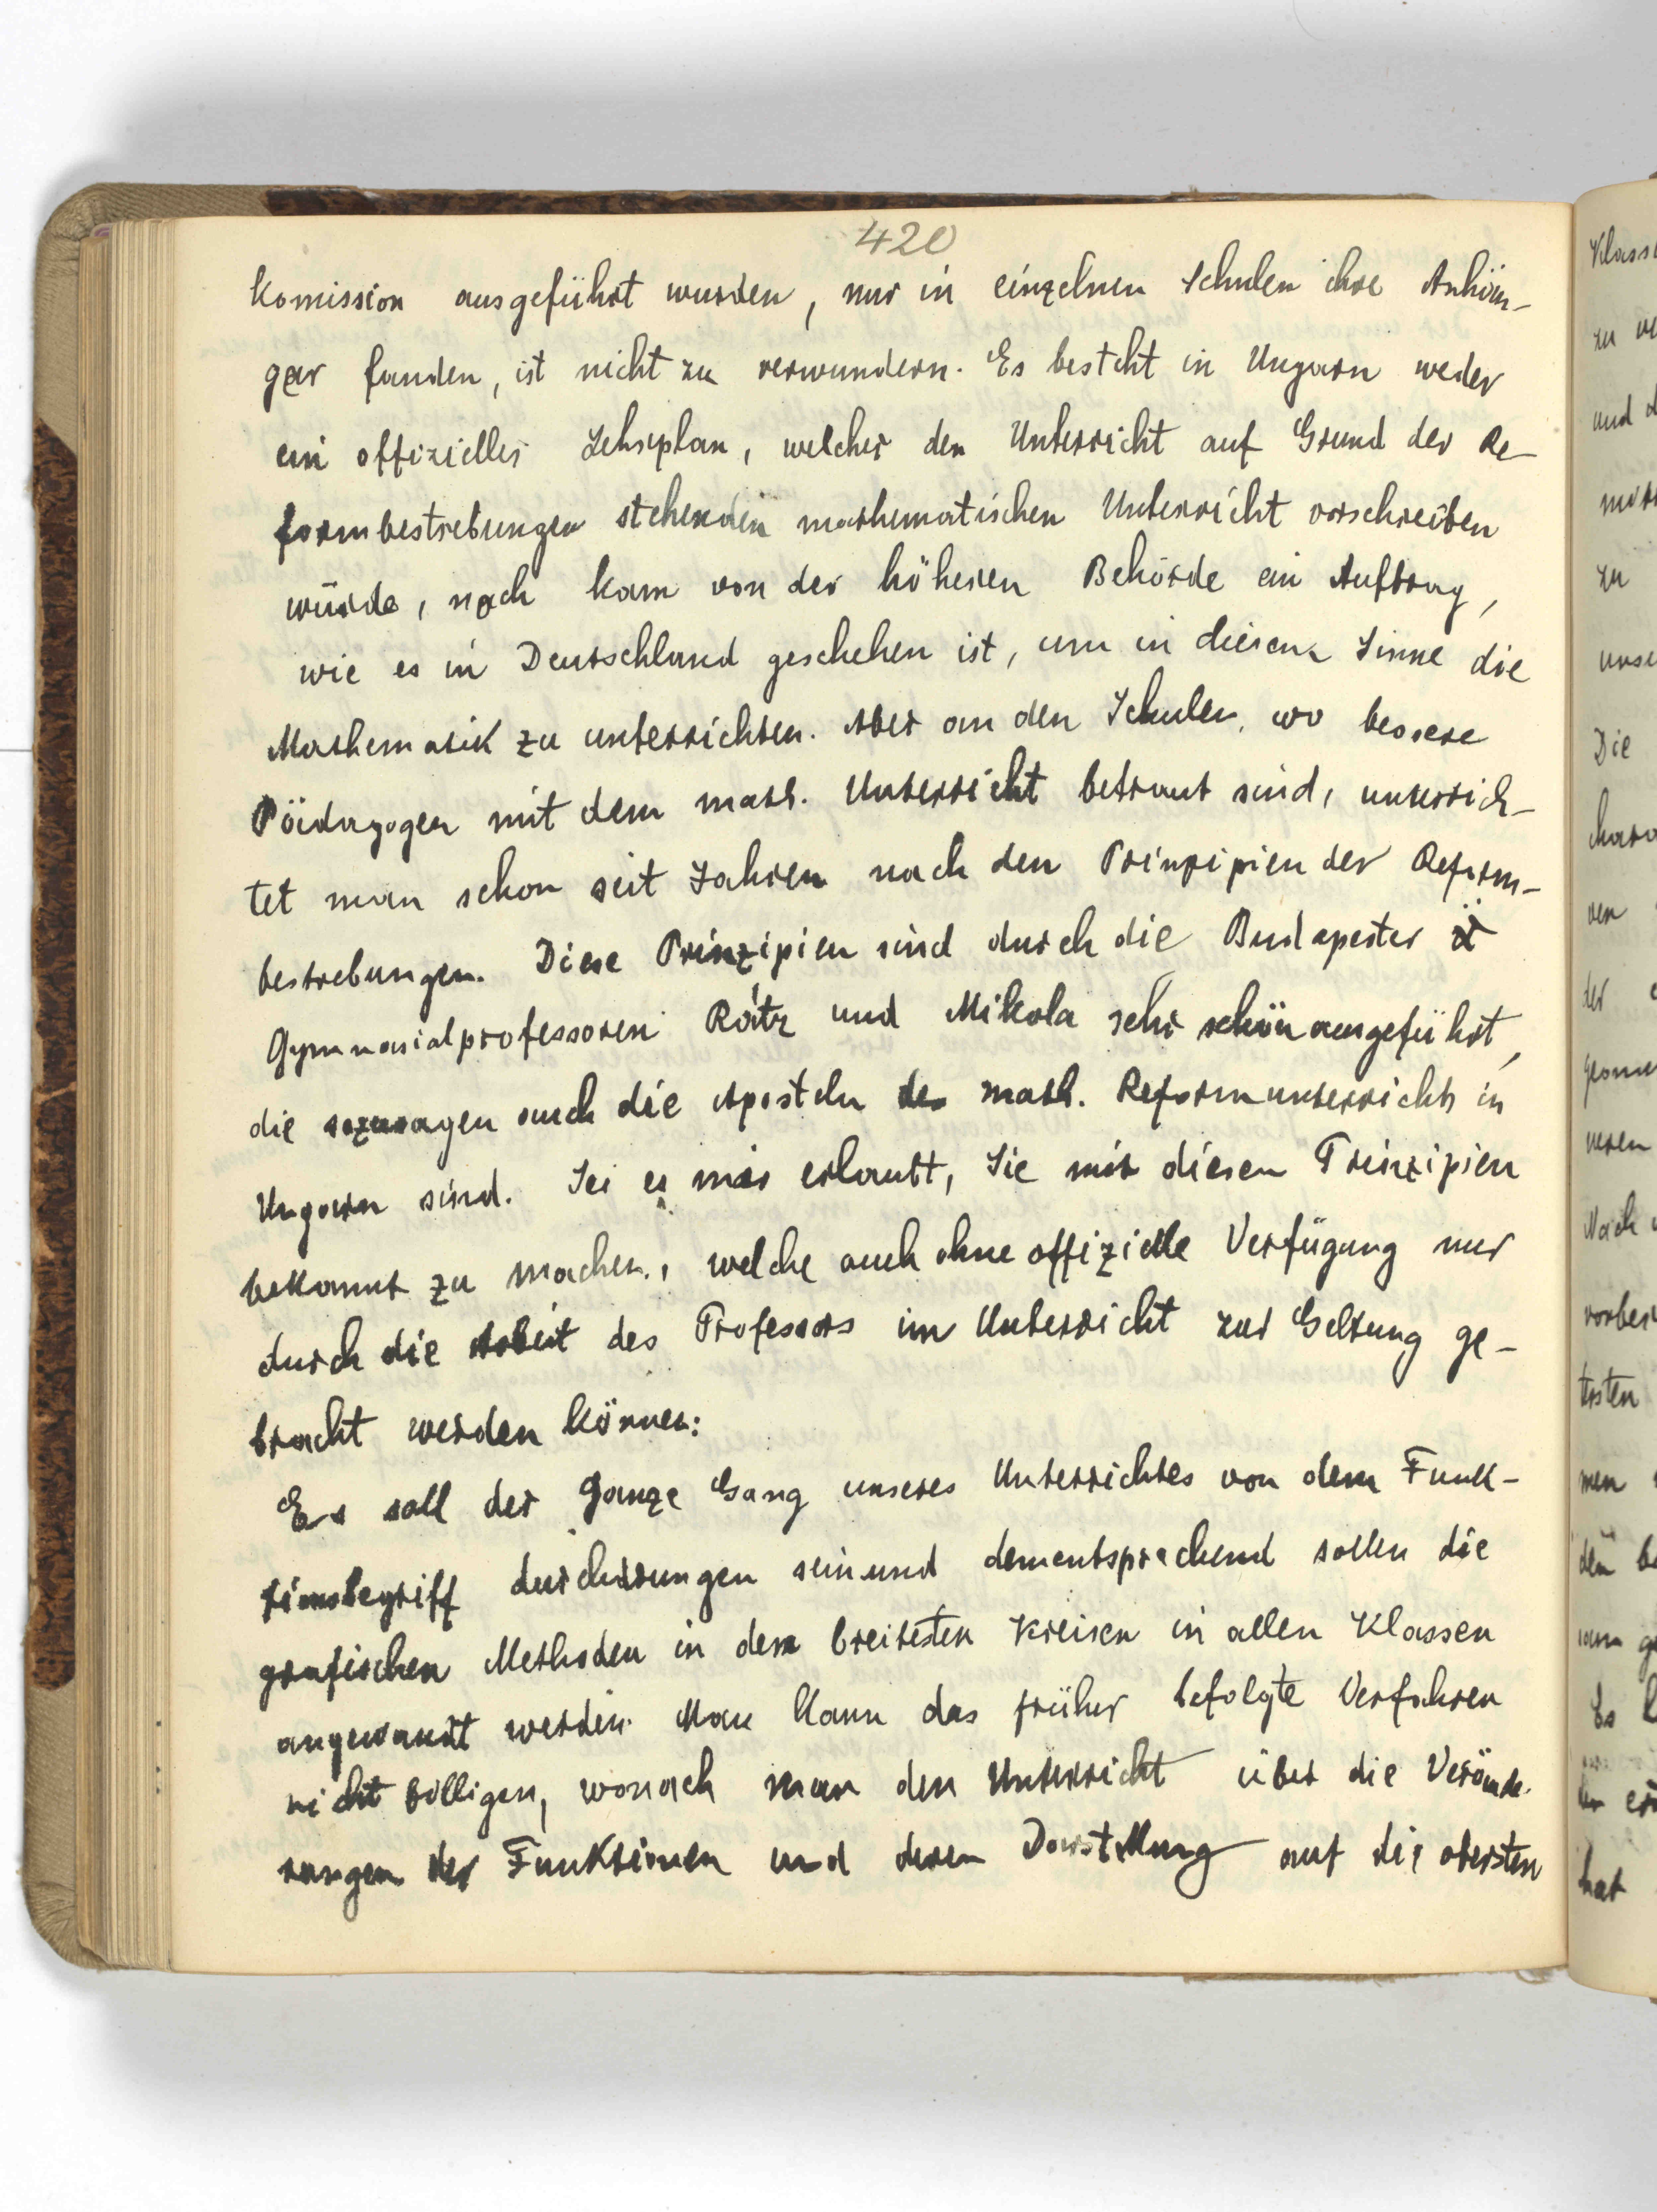 420
Komission ausgeführt wurden, nur in einzelnen Schulen ihre Anhän-
ger fanden, ist nicht zu verwundern. Es besteht in Ungarn weder
ein offizieller Lehrplan, welcher den Unterricht auf Grund der Re-
formbestrebungen stehenden mathematischen Unterricht vorschreiben
würde, noch kam von der höheren Behörde ein Auftrag,
wie es in Deutschland geschehen ist, um in diesem Sinne die
Mathematik zu unterrichten. Aber an den Schulen, wo bessere
Pädagogen mit dem math. Unterricht betraut sind, unterrich-
tet man schon seit Jahren nach den Prinzipien der Reform-
bestrebungen. Diese Prinzipien sind durch die Budapester
Gymnasialprofessoren Rátz und Mikola sehr schön ausgeführt,
die sozusagen auch die Aposteln des math. Reformunterrichts in
Ungarn sind. Sei es mir erlaubt, Sie mit diesen Prinzipien
bekannt zu machen, welche auch ohne offizielle Verfügung nur
durch die Arbeit des Professors im Unterricht zur Geltung ge-
bracht werden können:
Es soll der ganze Gang unseres Unterrichtes von dem Funk-
tionsbegriff durchdrungen sein und dementsprechend sollen die
grafischen Methoden in den breitesten Kreisen in allen Klassen
angewandt werden. Man kann das früher befolgte Verfahren
nicht billigen, wonach man den Unterricht über die Verände-
rungen der Funktionen und deren Darstellung auf die obersten
Klass
zu
und
zu
unse
Die
der
Nach
vorber
testen
Es
hat